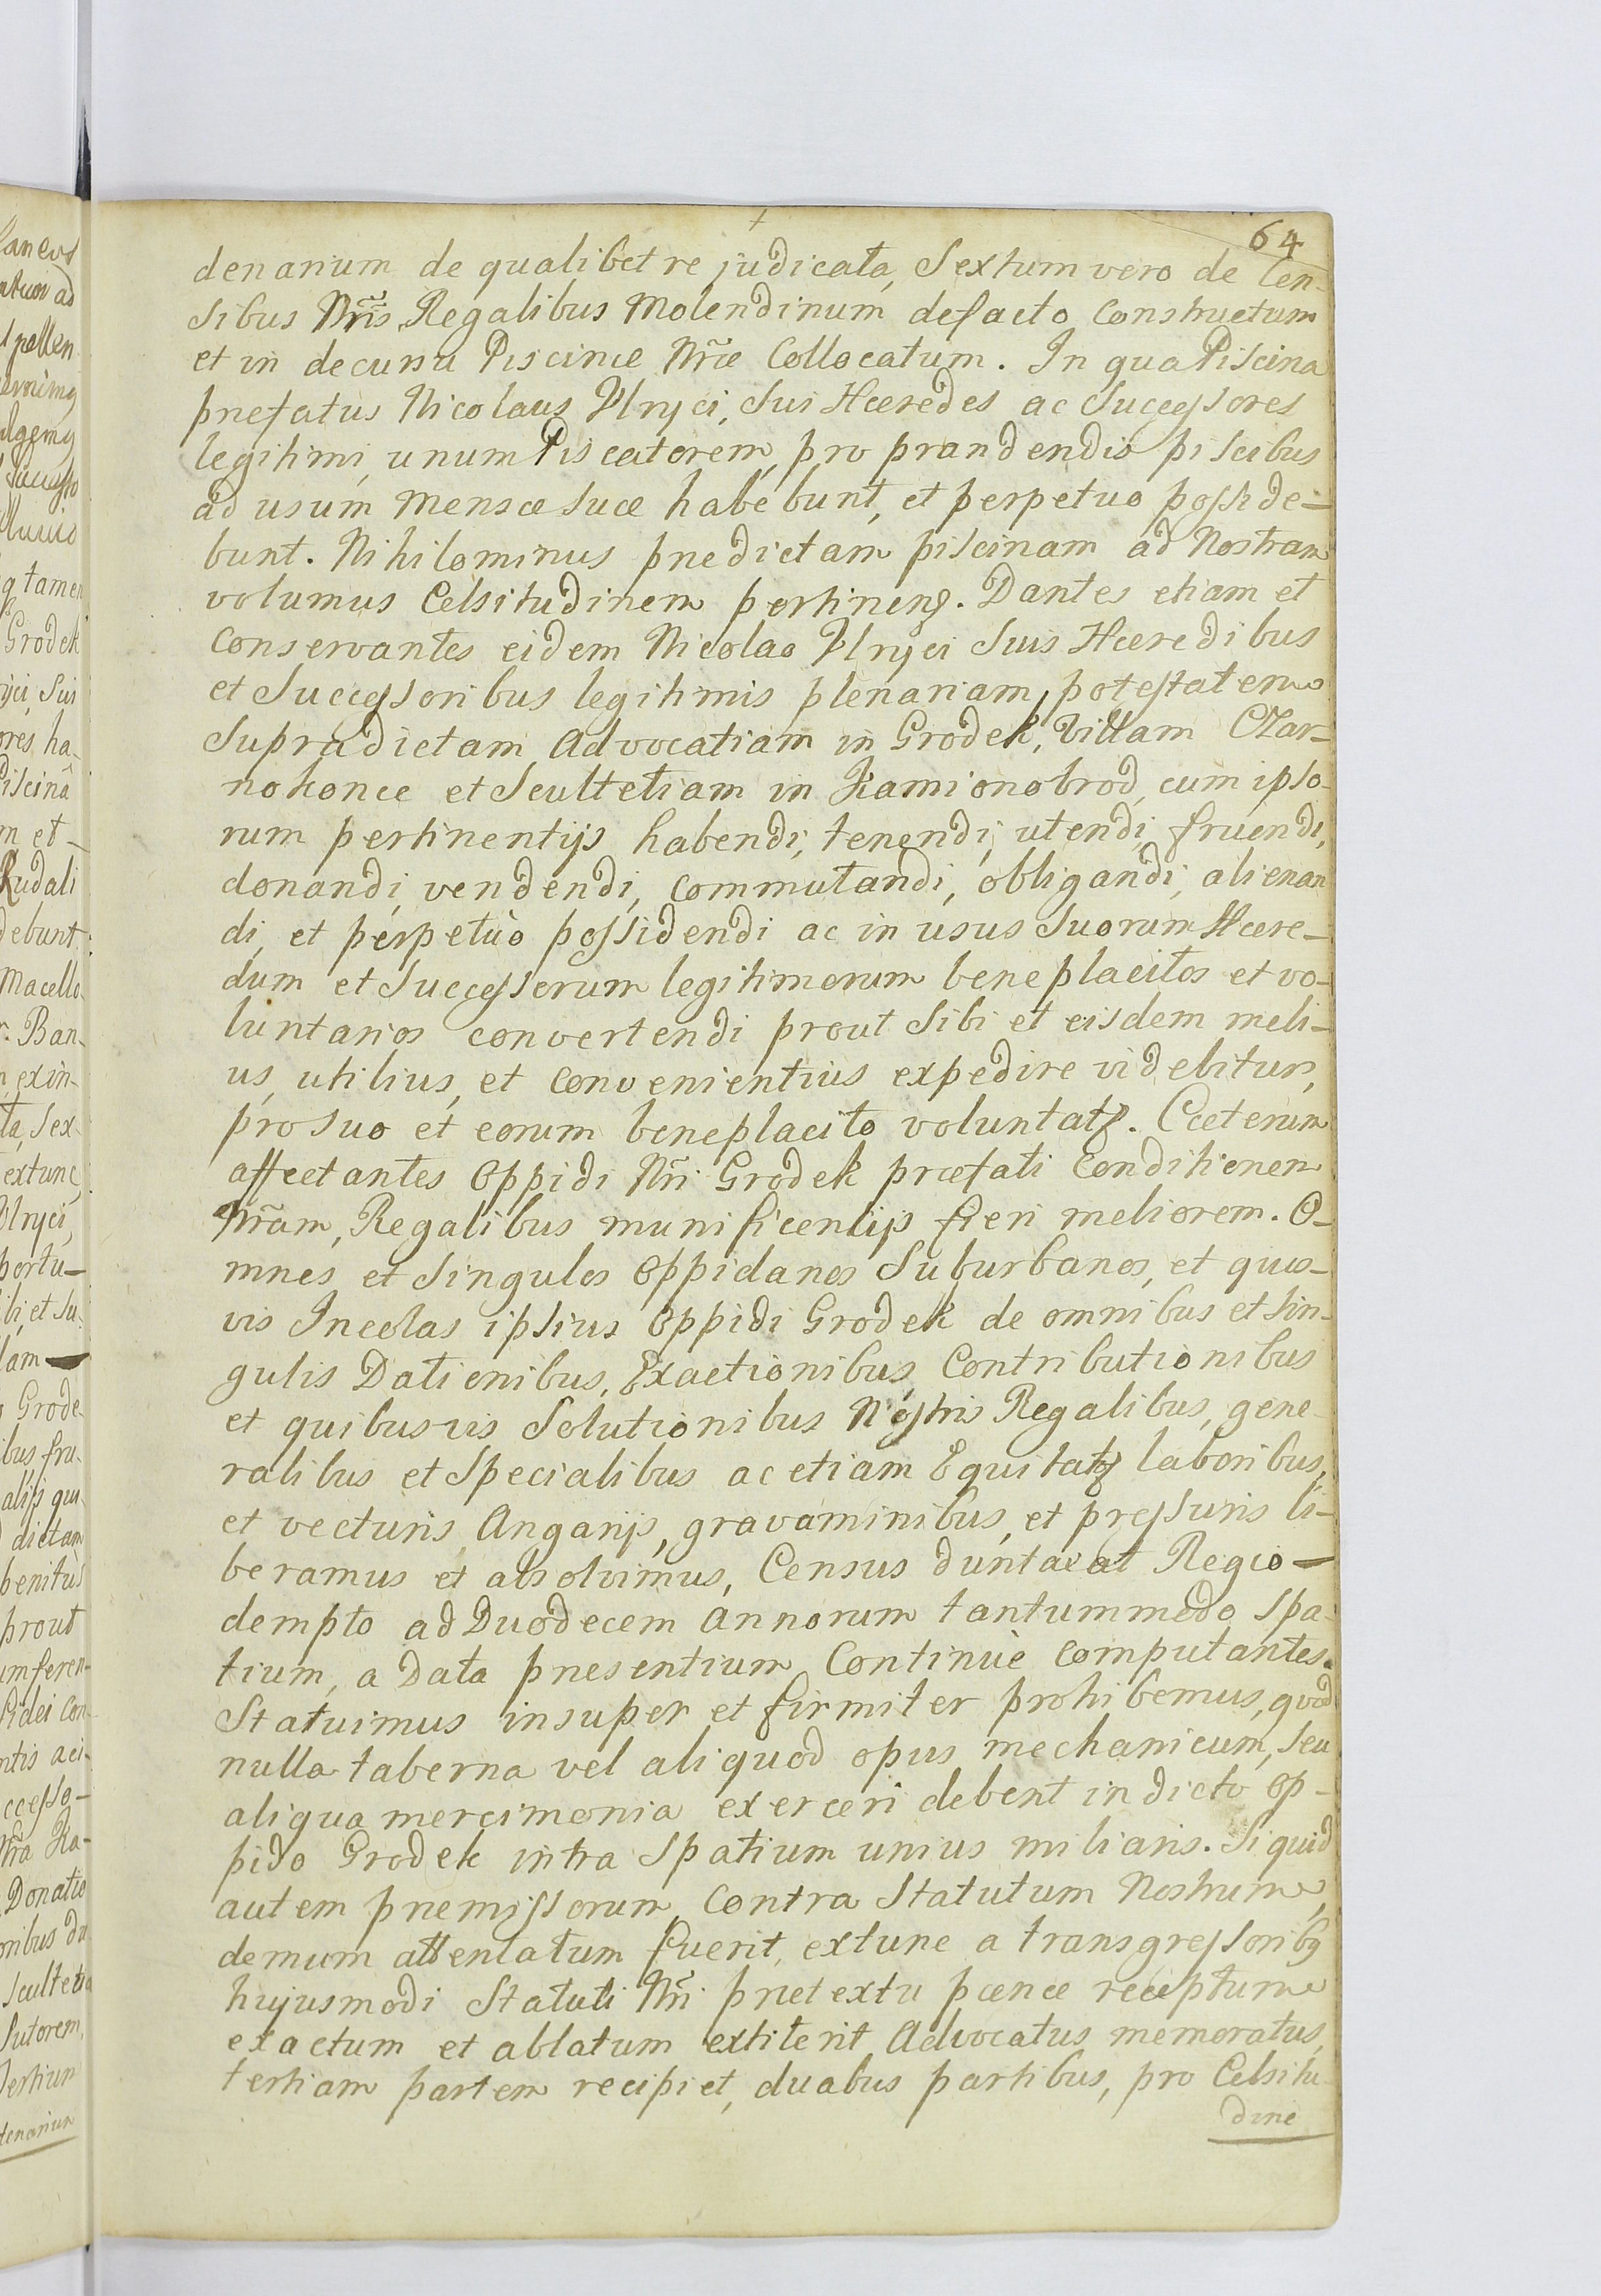 64
denarium de qualibet re judicata, Sextum vero de Cen-
sibus Nr̃is Regalibus Molendinum defacto Constructum
et in decursu Piscinæ Nr̃æ Collocatum. In qua Piscina
præfatus Nicolaus Ulryci, Sui Hæredes ac Successores
legitimi unum Piscatorem, pro prandendis piscibus
ad usum mensæ suæ habebunt, et perpetuo posside-
bunt. Nihilominus prædictam piscinam ad Nostram
volumus Celsitudinem pertinere. Dantes etiam et
Conservantes eidem Nicolao Ulryci Suis Hæredibus
et Successoribus legitimis plenariam potestatem
Supradictam Advocatiam in Grodek, Villam Czar-
nokonce et Scultetiam in Kamionobrod, cum ipso-
rum pertinentijs habendi, tenendi, utendi, fruendi,
donandi, vendendi, commutandi, obligandi, alienan
di, et perpetuò possidendi ac in usus Suorum Hære-
dum et Successorum legitimorum beneplacitos et vo-
luntarios convertendi prout Sibi et eisdem meli-
us, utilius, et convenientius expedire videbitur,
pro suo et eorum beneplacito voluntatꝭ. Cæterum
affectantes Oppidi Nr̃i Grodek præfati Conditionem
Nr̃am, Regalibus munificentijs fieri meliorem. O-
mnes et Singulos Oppidanos Suburbanos, et quos-
vis Incolas ipsius Oppidi Grodek de omnibus et sin-
gulis Dationibus, Exactionibus, Contributionibus
et quibusvis Solutionibus Nostris Regalibus, gene-
ralibus et Specialibus ac etiam Equitatꝭ laboribus,
et vecturis, Angarijs, gravaminibus, et pressuris li-
beramus et absolvimus, Census duntaxat Regio-
dempto ad Duodecem annorum tantummodo Spa-
tium, a Data præsentium Continuè computantes.
Statuimus insuper et firmiter prohibemus, quod
nulla taberna vel aliquod opus mechanicum, seu
aliqua mercimonia exerceri debent in dicto Op-
pido Grodek intra Spatium unius miliaris. Si quid
autem præmissorum Contra Statutum Nostrum,
demum attentatum fuerit, extunc a transgressoribꝰ
hujusmodi Statuti Nr̃i prætextu pœnæ receptum
exactum et ablatum extiterit Advocatus memoratus,
tertiam partem recipiet, duabus partibus, pro Celsitu-
dine